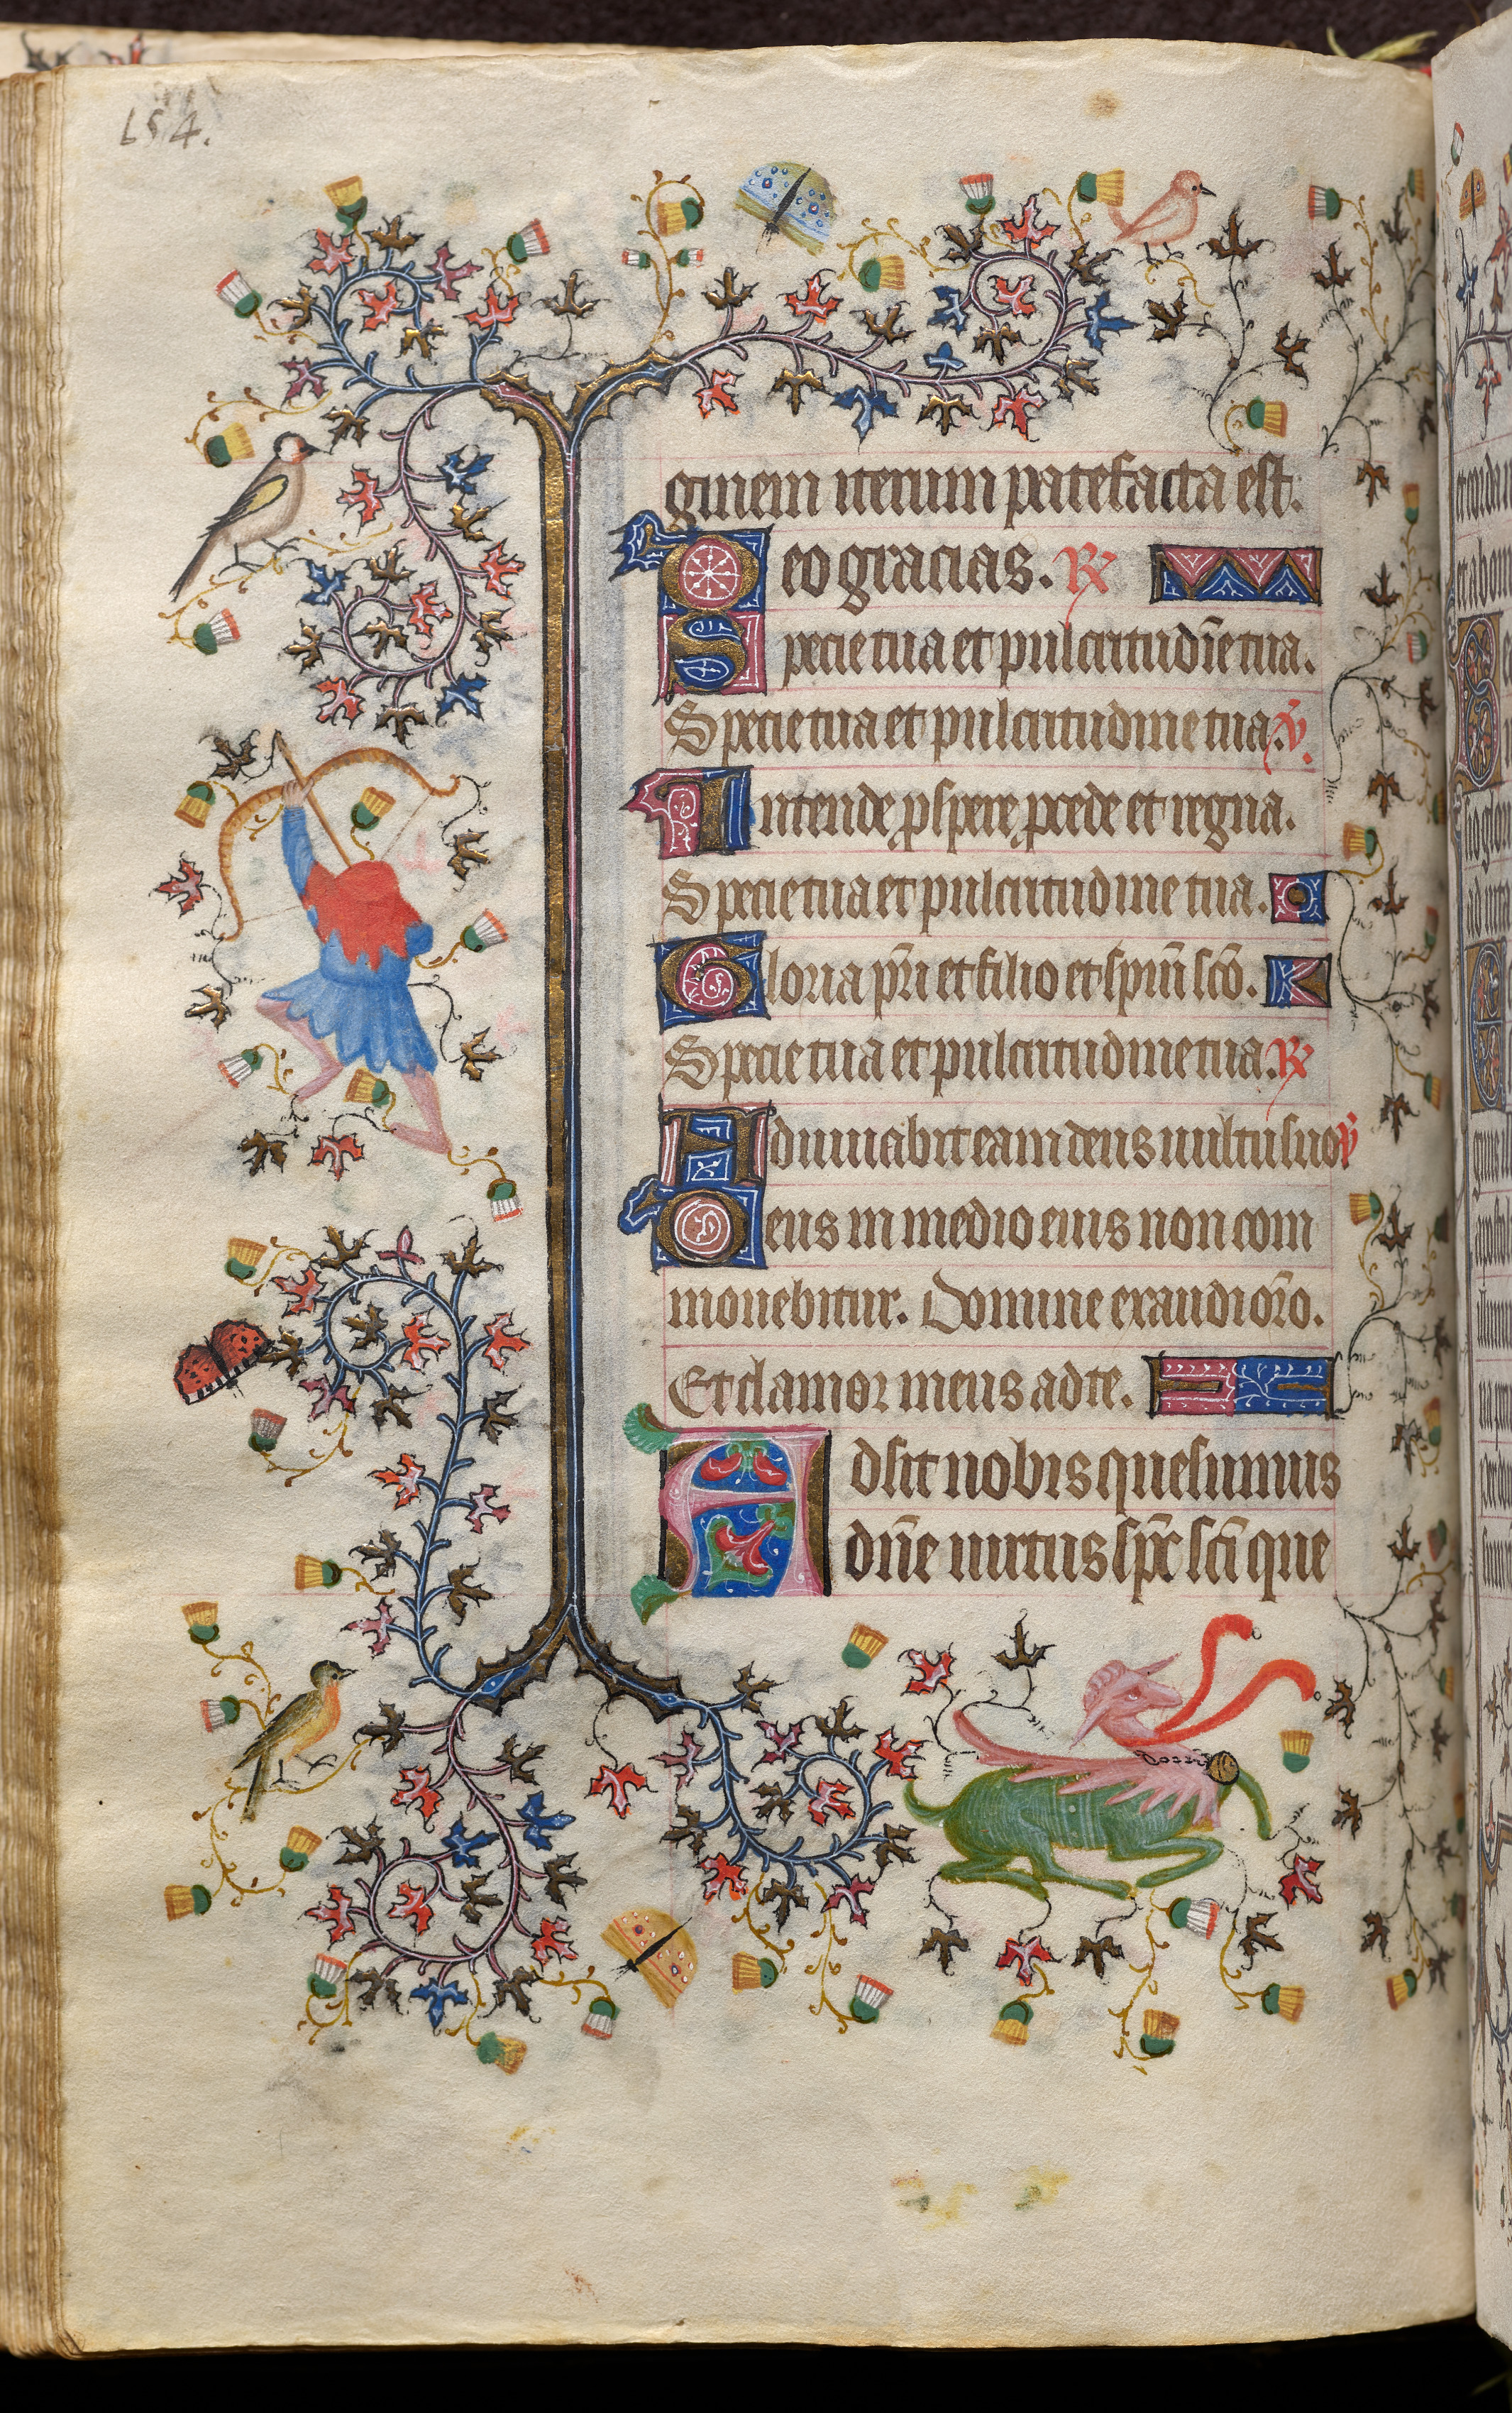 654.
ginem iterum patefacta est.
Deo gracias. R̸
Specie tua et pulcritudīe tua.
Specie tua et pulcritudine tua. V̸.
Intende ꝓspere ꝓcede et regna.
Specie tua et pulcritudine tua.
Gloria pr̄i et filio et spiritui sc̄o.
Specie tua et pulcritudine tua. R̸
Adiuuabit eam deus uultu suo V̸
Deus in medio eius non com
mouebitur. Domine exaudi or̄o.
Et clamor meus ad te.
Adsit nobis quesumus
dn̄e uirtus sp̄c sc̄i que